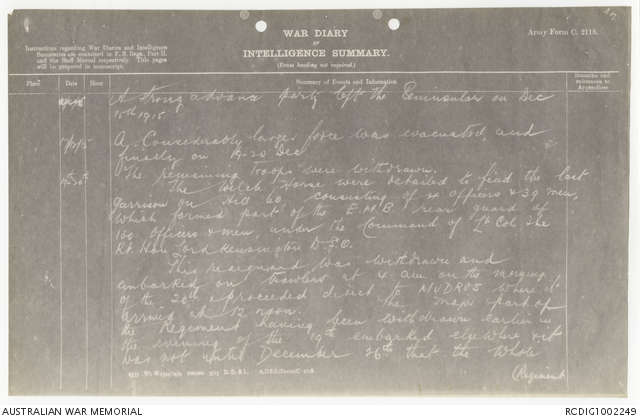 WAR DIARY
or
INTELLIGENCE SUMMARY.
(Erase heading not required.)
Army Form C. 2118.
Instructions regarding War Diaries and Intelligence
Summaries are contained in F. S. Regs., Part II.
and the Staff Manual respectively. Title pages
will be prepared in manuscript.
Place Date Hour Summary of Events and Information Remarks and references to Appendices
A strong advance party left the Peninsular on Dec
15th 1915.
A Considerably larger force was evacuated, and
finally on 19-20 Dec
The remaining troops were withdrawn.
The Welch Horse were detailed to find the last
garrison on Hill 60, consisting of 4 Officers & 39 men,
which formed part of the E.M.B. rear guard of
Officers & men, under the Command of Lt Col. The
Rt. Hon. Lord Kensington D.S.O.
This rearguard was withdrawn and
embarked on trawlers at 4 am on the morning
of the 20th & proceeded direct to MUDROS where it
arrived at 12 noon. The major part of
the Regiment having been withdrawn earlier in
the evening of the 19th embarked elsewhere &
was not until December 26th that the whole
Regiment
AUSTRALIAN WAR MEMORIAL
RCDIG1002249